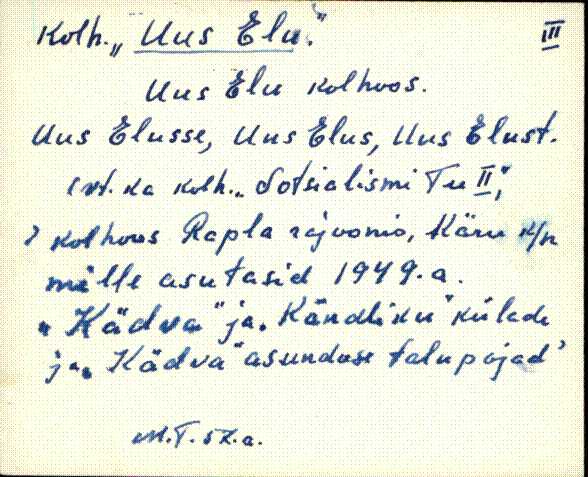 Kolh. „Uus Elu." III
Uus Elu kolhoos.
Uus Elusse, Uus Elus, Uus Elust.
(vt. ka kolh. „Sotsialismi Tu II",
› kolhoos Rapla rajoonis, Käru k/n
mille asutasid 1949. a.
„Kädva" ja „Kändliku" külade
ja „Kädva" asunduse talupojad ›
M.T. 57. a.